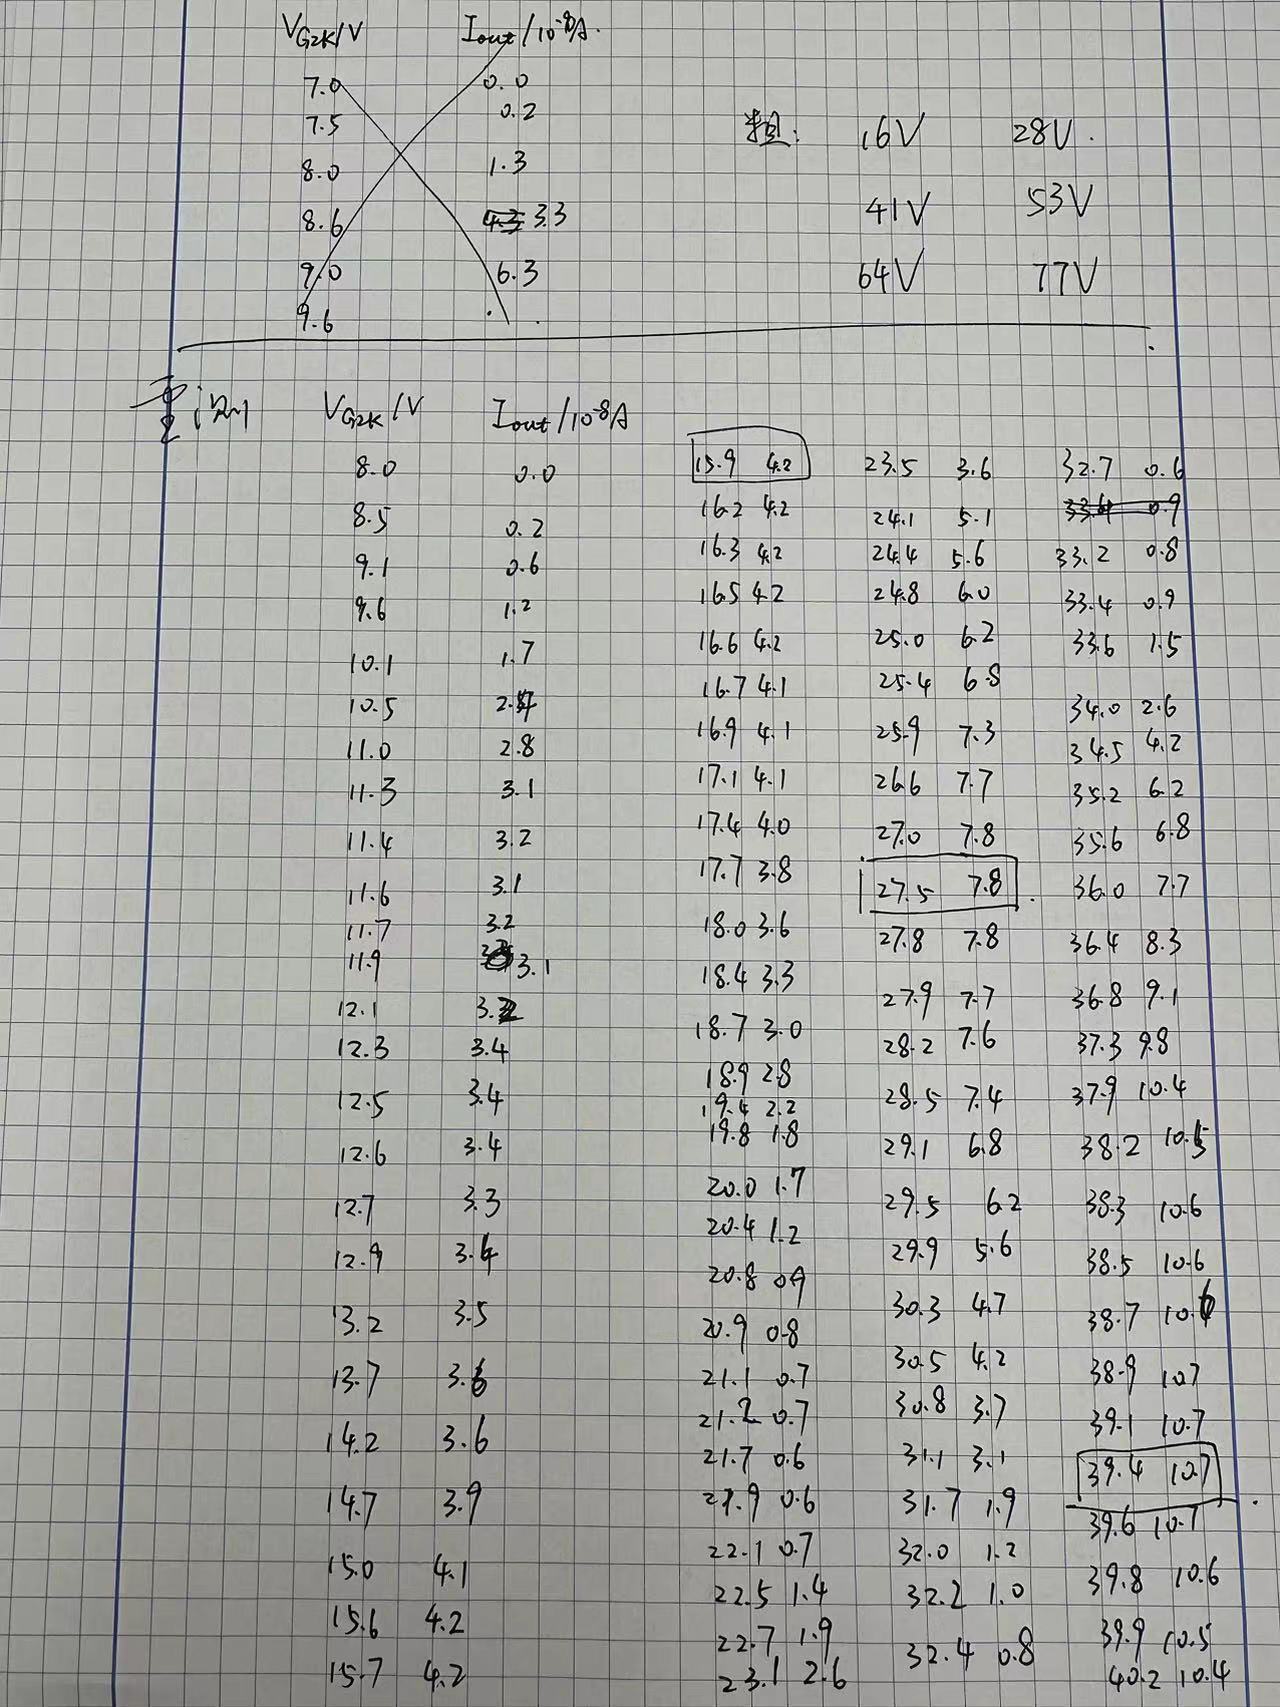 V_G2K/V I_out/10⁻⁸A.
7.0 0.0
7.5 0.2
8.0 1.3
8.6 3.3
9.0 6.3
9.6
粗: 16V 28V.
41V 53V
64V 77V
手测
V_G2K/V I_out/10⁻⁸A
8.0 0.0
8.5 0.2
9.1 0.6
9.6 1.2
10.1 1.7
10.5
11.0 2.8
11.3 3.1
11.4 3.2
11.6 3.1
11.7 3.2
11.9 3.1
12.1 3.2
12.3 3.4
12.5 3.4
12.6 3.4
12.7 3.3
12.9 3.4
13.2 3.5
13.7 3.6
14.2 3.6
14.7 3.9
15.0 4.1
15.6 4.2
15.7 4.2
15.9 4.2
16.2 4.2
16.3 4.2
16.5 4.2
16.6 4.2
16.7 4.1
16.9 4.1
17.1 4.1
17.4 4.0
17.7 3.8
18.0 3.6
18.4 3.3
18.7 3.0
18.9 2.8
19.4 2.2
19.8 1.8
20.0 1.7
20.4 1.2
20.8 0.9
20.9 0.8
21.1 0.7
21.2 0.7
21.7 0.6
21.9 0.6
22.1 0.7
22.5 1.4
22.7 1.9
23.1 2.6
23.5 3.6
24.1 5.1
24.4 5.6
24.8 6.0
25.0 6.2
25.4 6.8
25.9 7.3
26.6 7.7
27.0 7.8
27.5 7.8
27.8 7.8
27.9 7.7
28.2 7.6
28.5 7.4
29.1 6.8
29.5 6.2
29.9 5.6
30.3 4.7
30.5 4.2
30.8 3.7
31.1 3.1
31.7 1.9
32.0 1.2
32.2 1.0
32.4 0.8
32.7 0.6
33.4 0.9
33.2 0.8
33.4 0.9
33.6 1.5
34.0 2.6
34.5 4.2
35.2 6.2
35.6 6.8
36.0 7.7
36.4 8.3
36.8 9.1
37.3 9.8
37.9 10.4
38.2 10.5
38.3 10.6
38.5 10.6
38.7 10.6
38.9 10.7
39.1 10.7
39.4 10.7
39.6 10.7
39.8 10.6
39.9 10.5
40.2 10.4